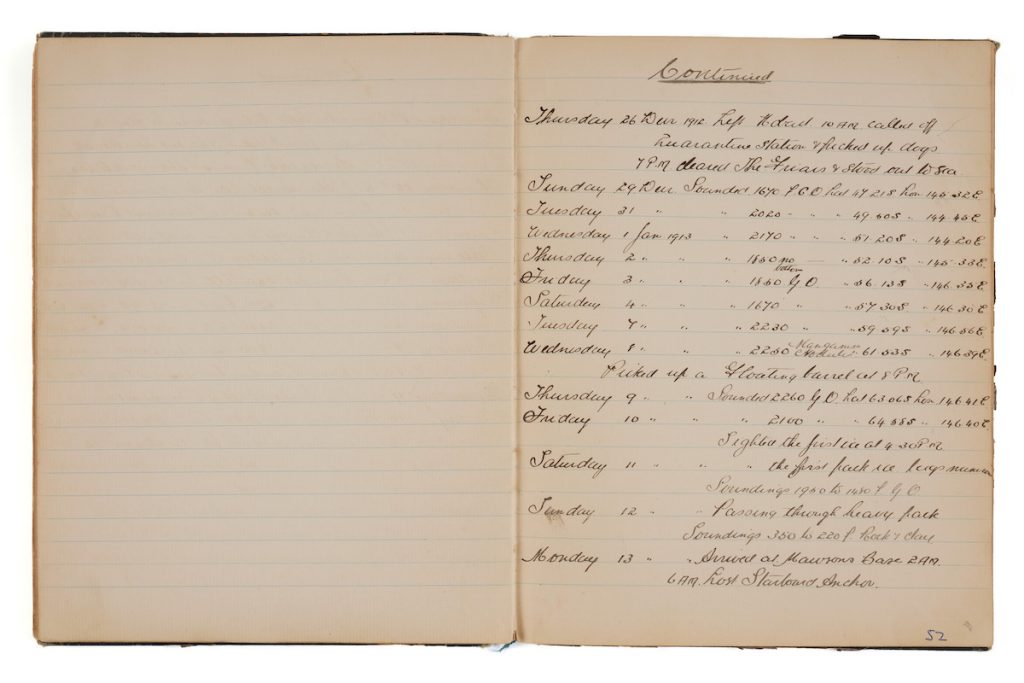 Continued
Thursday 26 Decr 1912. Left Hobart 10 AM. called off
Quarantine Station & picked up dogs
7 P.M cleared The Friars & stood out to Sea
Sunday 29 Decr. Sounded 1670 f. G O Lat 47 21S Lon 145 32 E
Tuesday 31 " " 2020 " " " 49 50S " 144 45 E
Wednesday 1 Jan 1913 " 2170 " " " 51 20S " 144 20 E
Thursday 2 " " " 1850 no bottom — " 52 10S " 145 33 E
Friday 3 " " " 1850 G O " 56 13S " 146 35 E
Saturday 4 " " " 1670 " " 57 30S " 146 30 E
Tuesday 7 " " " 2230 " " 59 59S " 146 56 E
Wednesday 8 " " " 2250 61 53S " 146 59 E
Picked up a floating barrel at 8 P.M.
Thursday 9 " " Sounded 2260 G O. Lat 63 06S Lon 146 41 E
Friday 10 " " " 2100 " " 64 55S " 146 40 E
Sighted the first ice at 4.30 P.M
Saturday 11 " " " the first pack ice
Soundings 1950 to 1450 f. G O
Sunday 12 " " Passing through heavy pack
Soundings 350 to 220 f. Rock & clay
Monday 13 " " Arrived at Mawsons Base 2 AM.
6 AM. Lost Starboard Anchor.
52